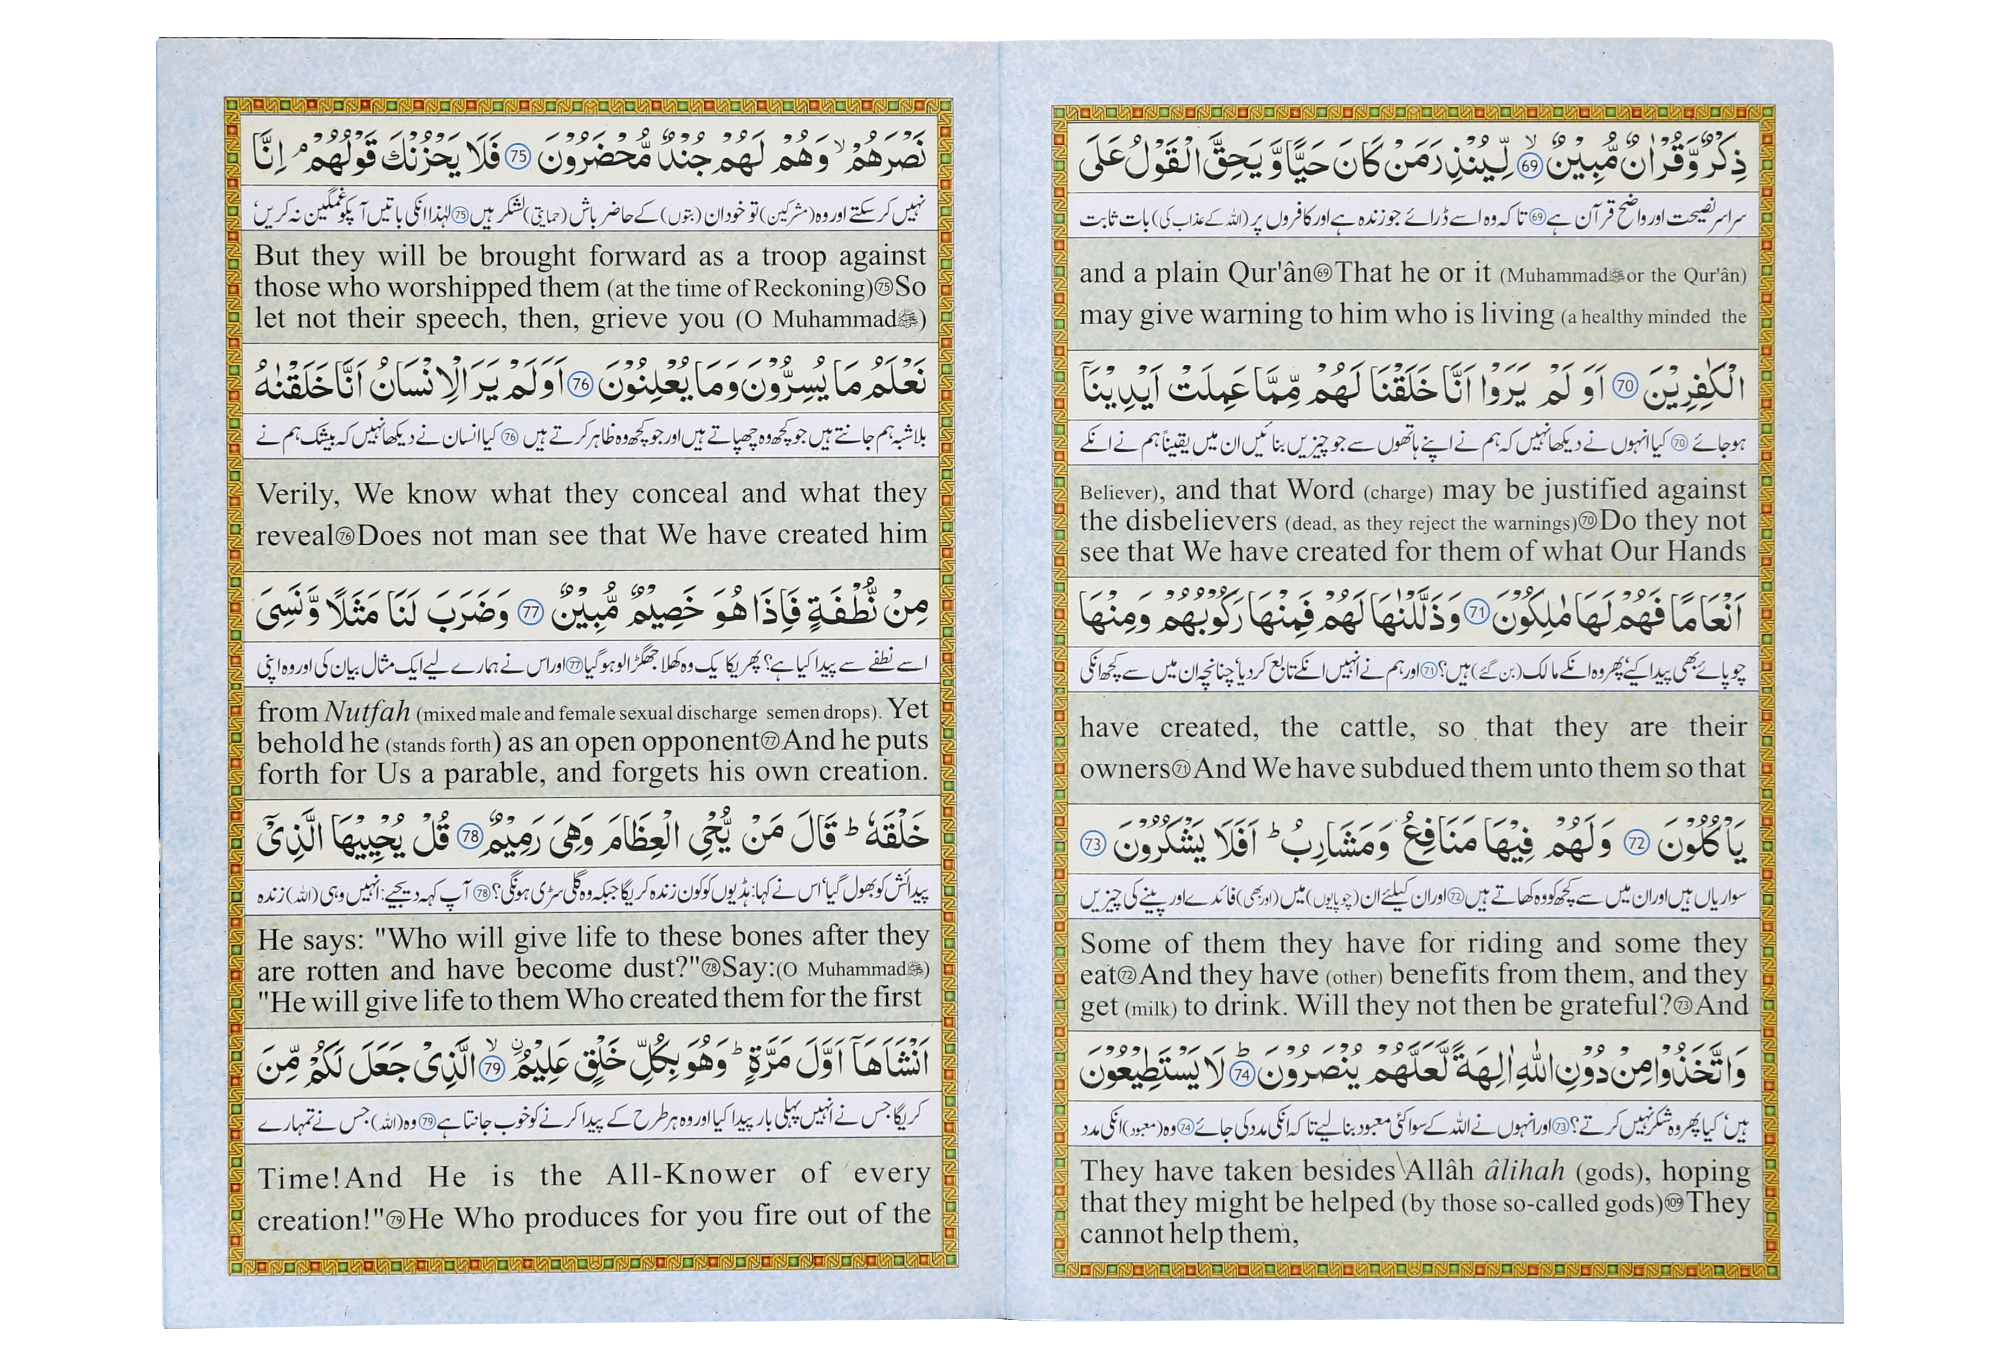 ذِكْرٌ وَّقُرْاٰنٌ مُّبِيْنٌ ۙ ﴿69﴾ لِّيُنْذِرَ مَنْ كَانَ حَيًّا وَّيَحِقَّ الْقَوْلُ عَلَى
سراسر نصیحت اور واضح قرآن ہے ﴿69﴾ تاکہ وہ اسے ڈرائے جو زندہ ہے اور کافروں پر (اللہ کے عذاب کی) بات ثابت
and a plain Qur'ân(69)That he or it (Muhammadﷺor the Qur'ân)
may give warning to him who is living (a healthy minded the
الْكٰفِرِيْنَ ﴿70﴾ اَوَ لَمْ يَرَوْا اَنَّا خَلَقْنَا لَهُمْ مِّمَّا عَمِلَتْ اَيْدِيْنَاۤ
ہو جائے ﴿70﴾ کیا انہوں نے دیکھا نہیں کہ ہم نے اپنے ہاتھوں سے جو چیزیں بنائیں ان میں یقیناً ہم نے انکے
Believer), and that Word (charge) may be justified against
the disbelievers (dead, as they reject the warnings)(70)Do they not
see that We have created for them of what Our Hands
اَنْعَامًا فَهُمْ لَهَا مٰلِكُوْنَ ﴿71﴾ وَذَلَّلْنٰهَا لَهُمْ فَمِنْهَا رَكُوْبُهُمْ وَمِنْهَا
چوپائے بھی پیدا کیے، پھر وہ انکے مالک (بن گئے) ہیں؟ ﴿71﴾ اور ہم نے انہیں انکے تابع کر دیا، چنانچہ ان میں سے کچھ انکی
have created, the cattle, so that they are their
owners(71)And We have subdued them unto them so that
يَاْكُلُوْنَ ﴿72﴾ وَلَهُمْ فِيْهَا مَنَافِعُ وَمَشَارِبُ ؕ اَفَلَا يَشْكُرُوْنَ ﴿73﴾
سواریاں ہیں اور ان میں سے کچھ کو وہ کھاتے ہیں ﴿72﴾ اور ان کیلئے ان (چوپایوں) میں (اور بھی) فائدے اور پینے کی چیزیں
Some of them they have for riding and some they
eat(72)And they have (other) benefits from them, and they
get (milk) to drink. Will they not then be grateful?(73)And
وَاتَّخَذُوْا مِنْ دُوْنِ اللّٰهِ اٰلِهَةً لَّعَلَّهُمْ يُنْصَرُوْنَ ؕ ﴿74﴾ لَا يَسْتَطِيْعُوْنَ
ہیں، کیا پھر وہ شکر نہیں کرتے؟ ﴿73﴾ اور انہوں نے اللہ کے سوا کئی معبود بنا لیے تاکہ انکی مدد کی جائے ﴿74﴾ وہ (معبود) انکی مدد
They have taken besides Allâh âlihah (gods), hoping
that they might be helped (by those so-called gods)(109)They
cannot help them,
نَصْرَهُمْ ۙ وَهُمْ لَهُمْ جُنْدٌ مُّحْضَرُوْنَ ﴿75﴾ فَلَا يَحْزُنْكَ قَوْلُهُمْ ۘ اِنَّا
نہیں کر سکتے اور وہ (مشرکین) تو خود ان (بتوں) کے حاضر باش (حمایتی) لشکر ہیں ﴿75﴾ لہٰذا انکی باتیں آپکو غمگین نہ کریں،
But they will be brought forward as a troop against
those who worshipped them (at the time of Reckoning)(75)So
let not their speech, then, grieve you (O Muhammadﷺ)
نَعْلَمُ مَا يُسِرُّوْنَ وَمَا يُعْلِنُوْنَ ﴿76﴾ اَوَلَمْ يَرَ الْاِنْسَانُ اَنَّا خَلَقْنٰهُ
بلاشبہ ہم جانتے ہیں جو کچھ وہ چھپاتے ہیں اور جو کچھ وہ ظاہر کرتے ہیں ﴿76﴾ کیا انسان نے دیکھا نہیں کہ بیشک ہم نے
Verily, We know what they conceal and what they
reveal(76)Does not man see that We have created him
مِنْ نُّطْفَةٍ فَاِذَا هُوَ خَصِيْمٌ مُّبِيْنٌ ﴿77﴾ وَضَرَبَ لَنَا مَثَلًا وَّنَسِيَ
اسے نطفے سے پیدا کیا ہے؟ پھر یکایک وہ کھلا جھگڑالو ہو گیا ﴿77﴾ اور اس نے ہمارے لیے ایک مثال بیان کی اور وہ اپنی
from Nutfah (mixed male and female sexual discharge semen drops). Yet
behold he (stands forth) as an open opponent(77)And he puts
forth for Us a parable, and forgets his own creation.
خَلْقَهٗ ؕ قَالَ مَنْ يُّحْيِ الْعِظَامَ وَهِيَ رَمِيْمٌ ﴿78﴾ قُلْ يُحْيِيْهَا الَّذِيْۤ
پیدائش کو بھول گیا، اس نے کہا: ہڈیوں کو کون زندہ کریگا جبکہ وہ گلی سڑی ہونگی؟ ﴿78﴾ آپ کہہ دیجیے: انہیں وہی (اللہ) زندہ
He says: "Who will give life to these bones after they
are rotten and have become dust?"(78)Say:(O Muhammadﷺ)
"He will give life to them Who created them for the first
اَنْشَاَهَاۤ اَوَّلَ مَرَّةٍ ؕ وَهُوَ بِكُلِّ خَلْقٍ عَلِيْمُ ۙ ﴿79﴾ الَّذِيْ جَعَلَ لَكُمْ مِّنَ
کریگا جس نے انہیں پہلی بار پیدا کیا اور وہ ہر طرح کے پیدا کرنے کو خوب جانتا ہے ﴿79﴾ وہ (اللہ) جس نے تمہارے
Time!And He is the All-Knower of every
creation!"(79)He Who produces for you fire out of the